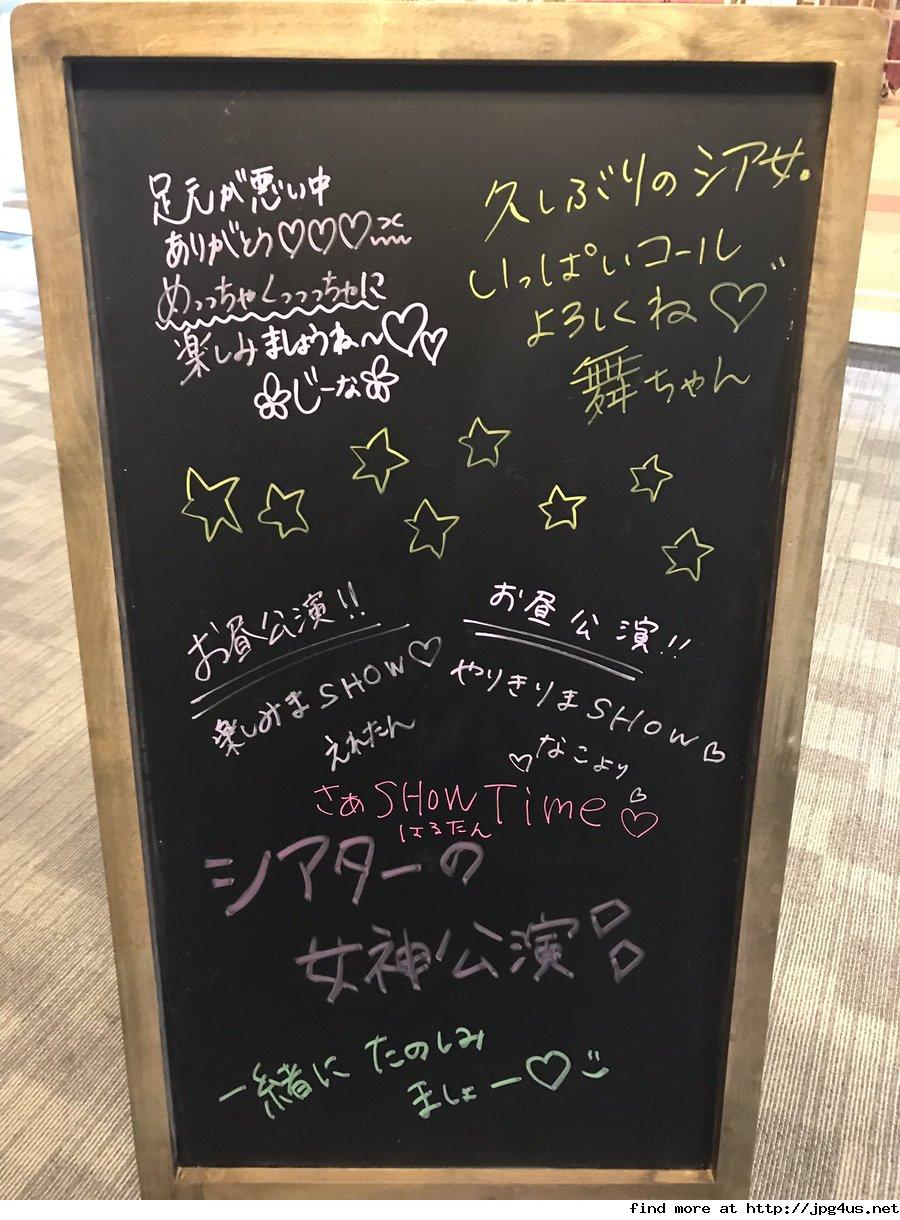 足元が悪い中
ありがとう♡♡♡
めっっちゃくっっっちゃに
楽しみましょうね〜♡♡
じーな
久しぶりのシア女。
いっぱいコール
よろしくね♡
舞ちゃん
お昼公演!!
楽しみまSHOW♡
えれたん
お昼公演!!
やりきりまSHOW♡
♡なこより
さあSHOWTime♡♡
はるたん
シアターの
女神公演
一緒にたのしみ
ましょー♡
find more at http://jpg4us.net